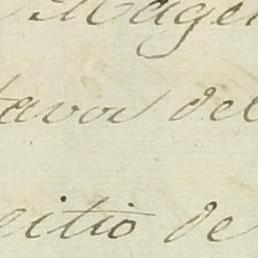 Mage
tavos del
sitio de